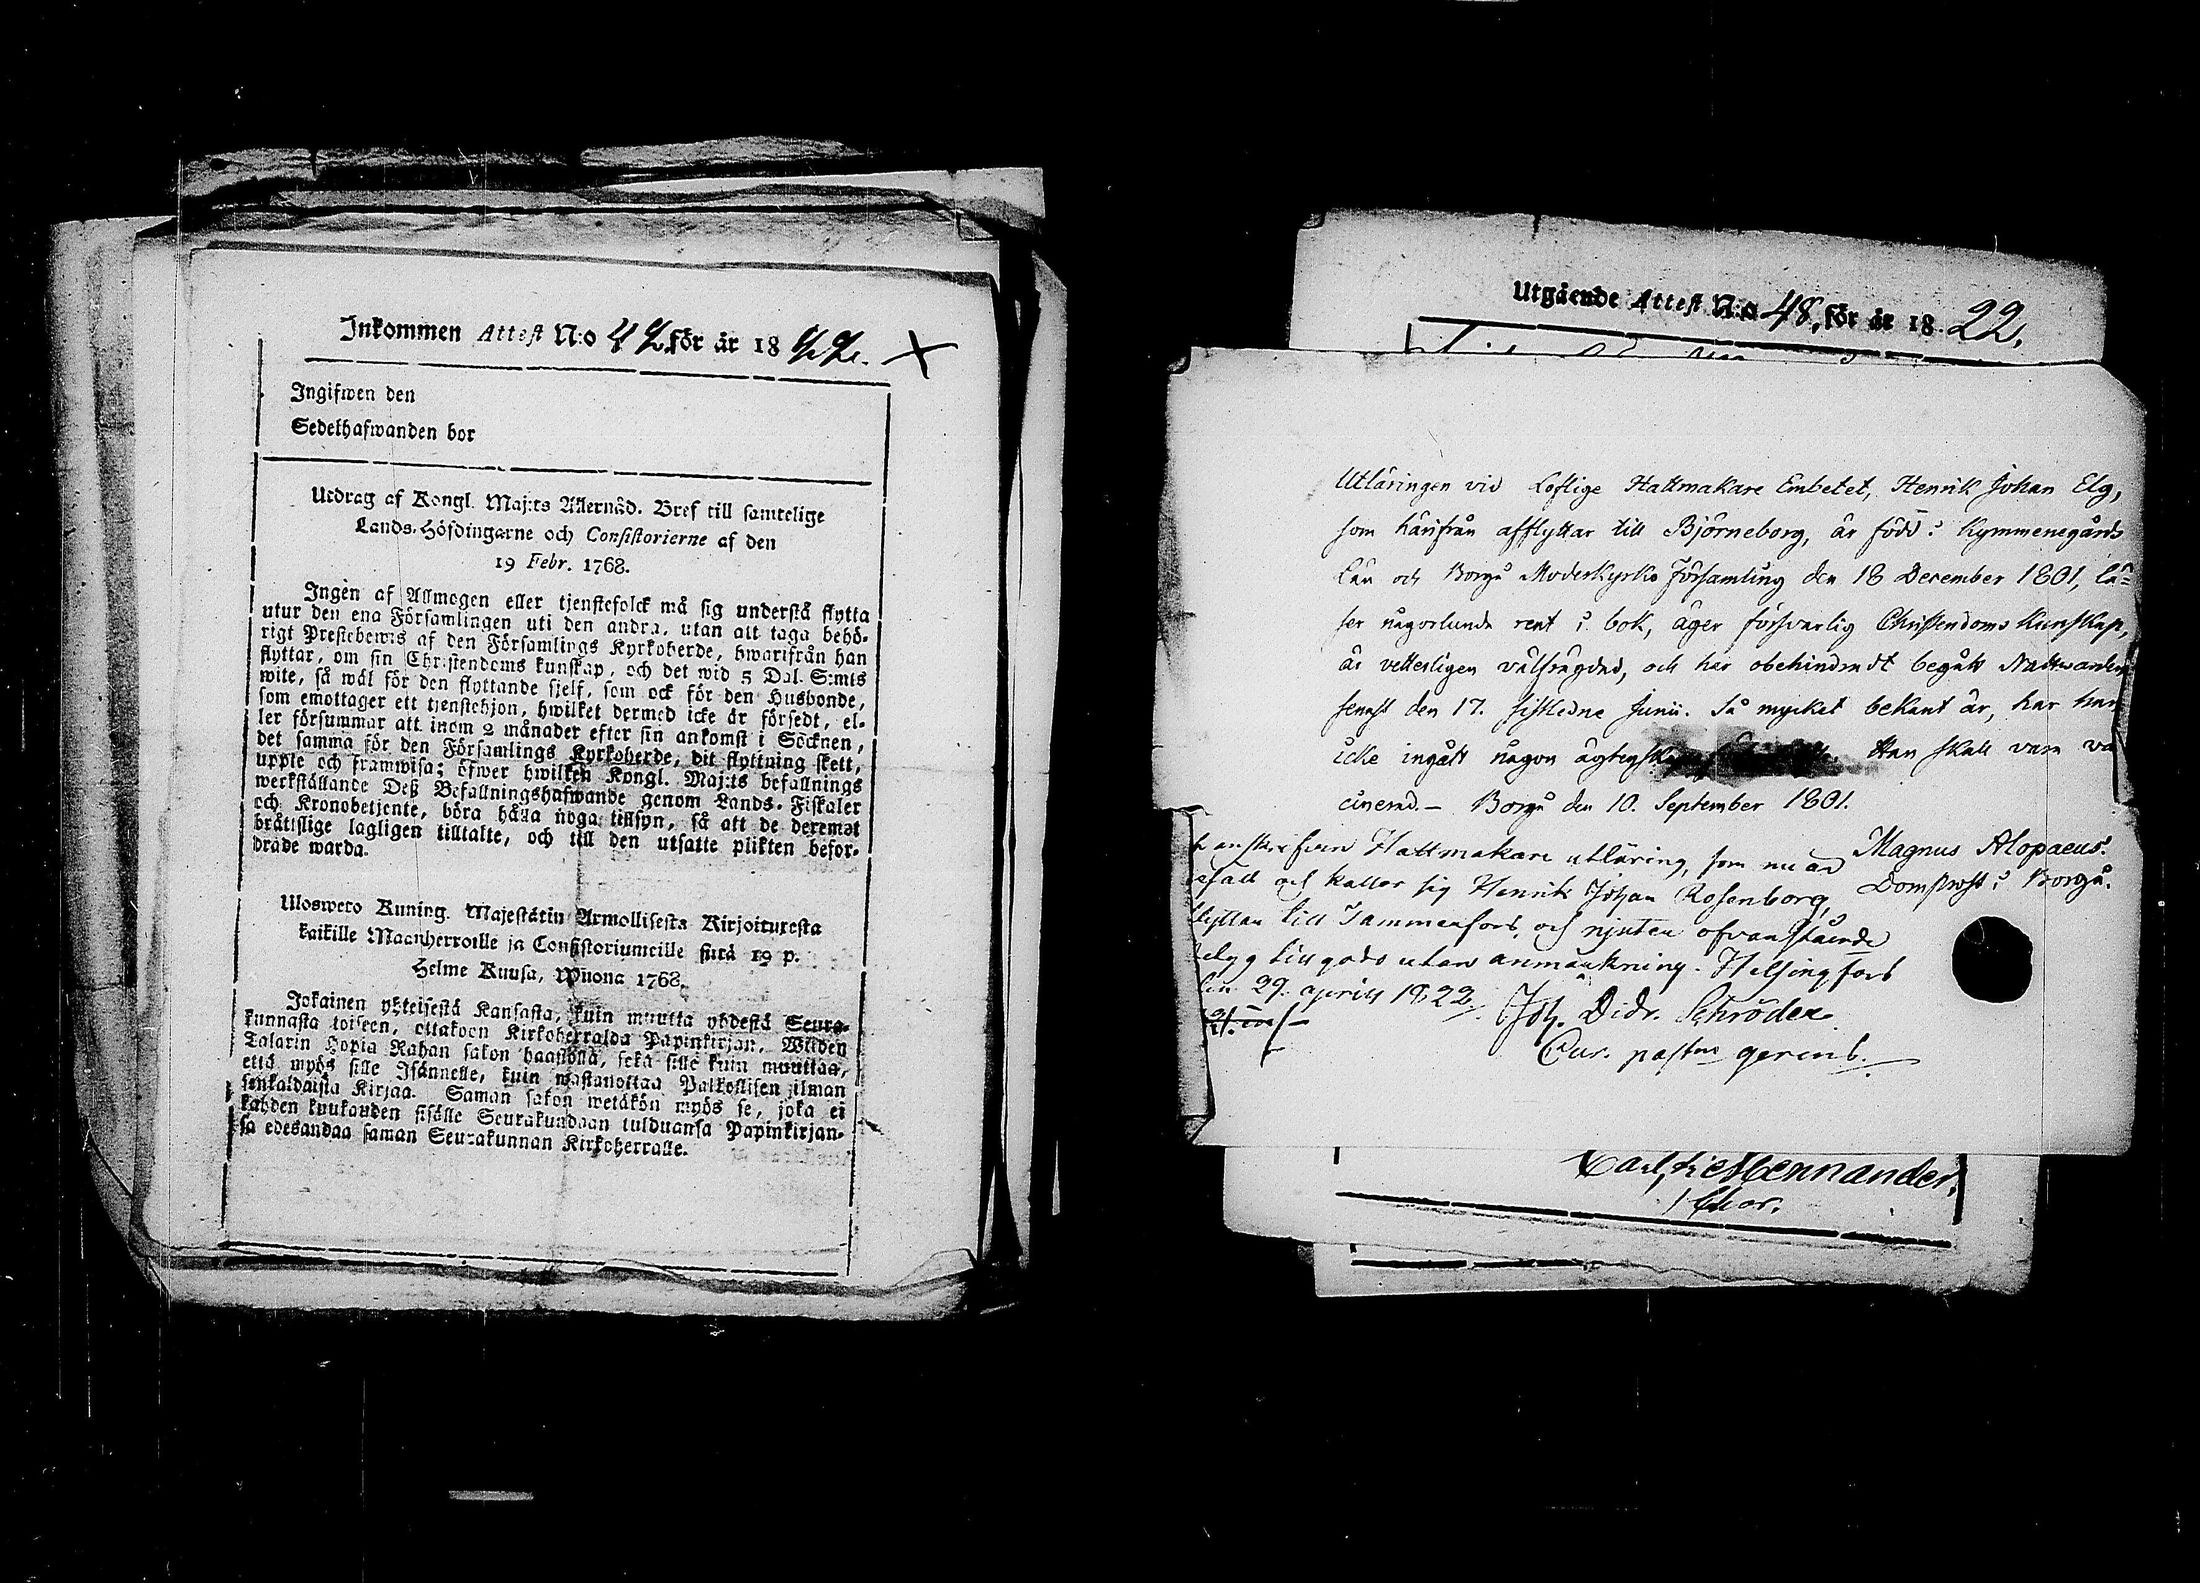 Inkommen Attest N:o 42 för år 18 22.
Ingifwen den
Sedelhafwanden bor
Utdrag af Kongl. Maj:ts Allernåd. Bref till samtelige
Lands-Höfdingarne och Consistorierne af den
19 Febr. 1768.
Ingen af Allmogen eller tjenstefolck må sig understå flytta
utur den ena Församlingen uti den andra, utan att taga behö-
rigt Prestebewis af den Församlings Kyrkoherde, hwarifrån han
flyttar, om sin Christendoms kunskap, och det wid 5 Dal. S:mts
wite, så wäl för den flyttande sjelf, som ock för den Husbonde,
som emottager ett tjenstehjon, hwilket dermed icke är försedt, el-
ler försummar att inom 2 månader efter sin ankomst i Söcknen,
det samma för den Församlings Kyrkoherde, dit flyttning skett,
upple och framwisa; öfwer hwilken Kongl. Maj:ts befallnings
werkställande Deß Befallningshafwande genom Lands-Fiskaler
och Kronobetjente, böra hålla noga tillsyn, så att de deremot
bråttslige lagligen tilltalte, och till den utsatte plikten befor-
drade warda.
Uloswето Kuning. Majestätin Armollisesta Kirjoituxesta
kaikille Maanherroille ja Consistoriumeille siitä 19 p.
Helme Kuusa, Wuona 1768.
Jokainen yhteisestä Kansasta, kuin muutta yhdestä Seura-
kunnasta toiseen, ottakoon Kirkoherralda Papinkirjan, Wiiden
Talarin Hopia Rahan sakon haastolla, sekä sille kuin muuttaa,
että myös sille Isännelle, kuin wastanottaa Palkollisen ilman
senkaldaista Kirjaa. Saman sakon wetäkön myös se, joka ei
kahden kuukauden sisälle Seurakundaan tulduansa Papinkirjan-
sa edesandaa saman Seurakunnan Kirkoherralle.
Utgående Attest N:o 48, för år 18 22.
Utläringen vid Loflige Hattmakare Embetet, Henrik Johan Elg,
som härifrån afflyttar till Björneborg, är född i Kymmenegårds
Län och Borgå Moderkyrko Församling den 18 December 1801, lä-
ser någorlunda rent i bok, äger försvarlig Christendoms Kunskap,
är vetterligen välfrägdad, och har obehindradt begått Nattvarden
senast den 17. sistledne Junii. Så mycket bekant är, har han
icke ingått någon Han skall vara va
cinerad. – Borgå den 10. September 1801.
Magnus Alopaeus.
Domprost i Borgå.
Hattmakare utläring, som nu är
och kallar sig Henrik Johan Rosenborg,
flyttar till Tammerfors, och njuter ofvanstående
tillgodo utan anmärkning. Helsingfors
den 29. aprill 1822.
Joh. Didr. Schröder.
Cur. past. gerens.
Hennander.